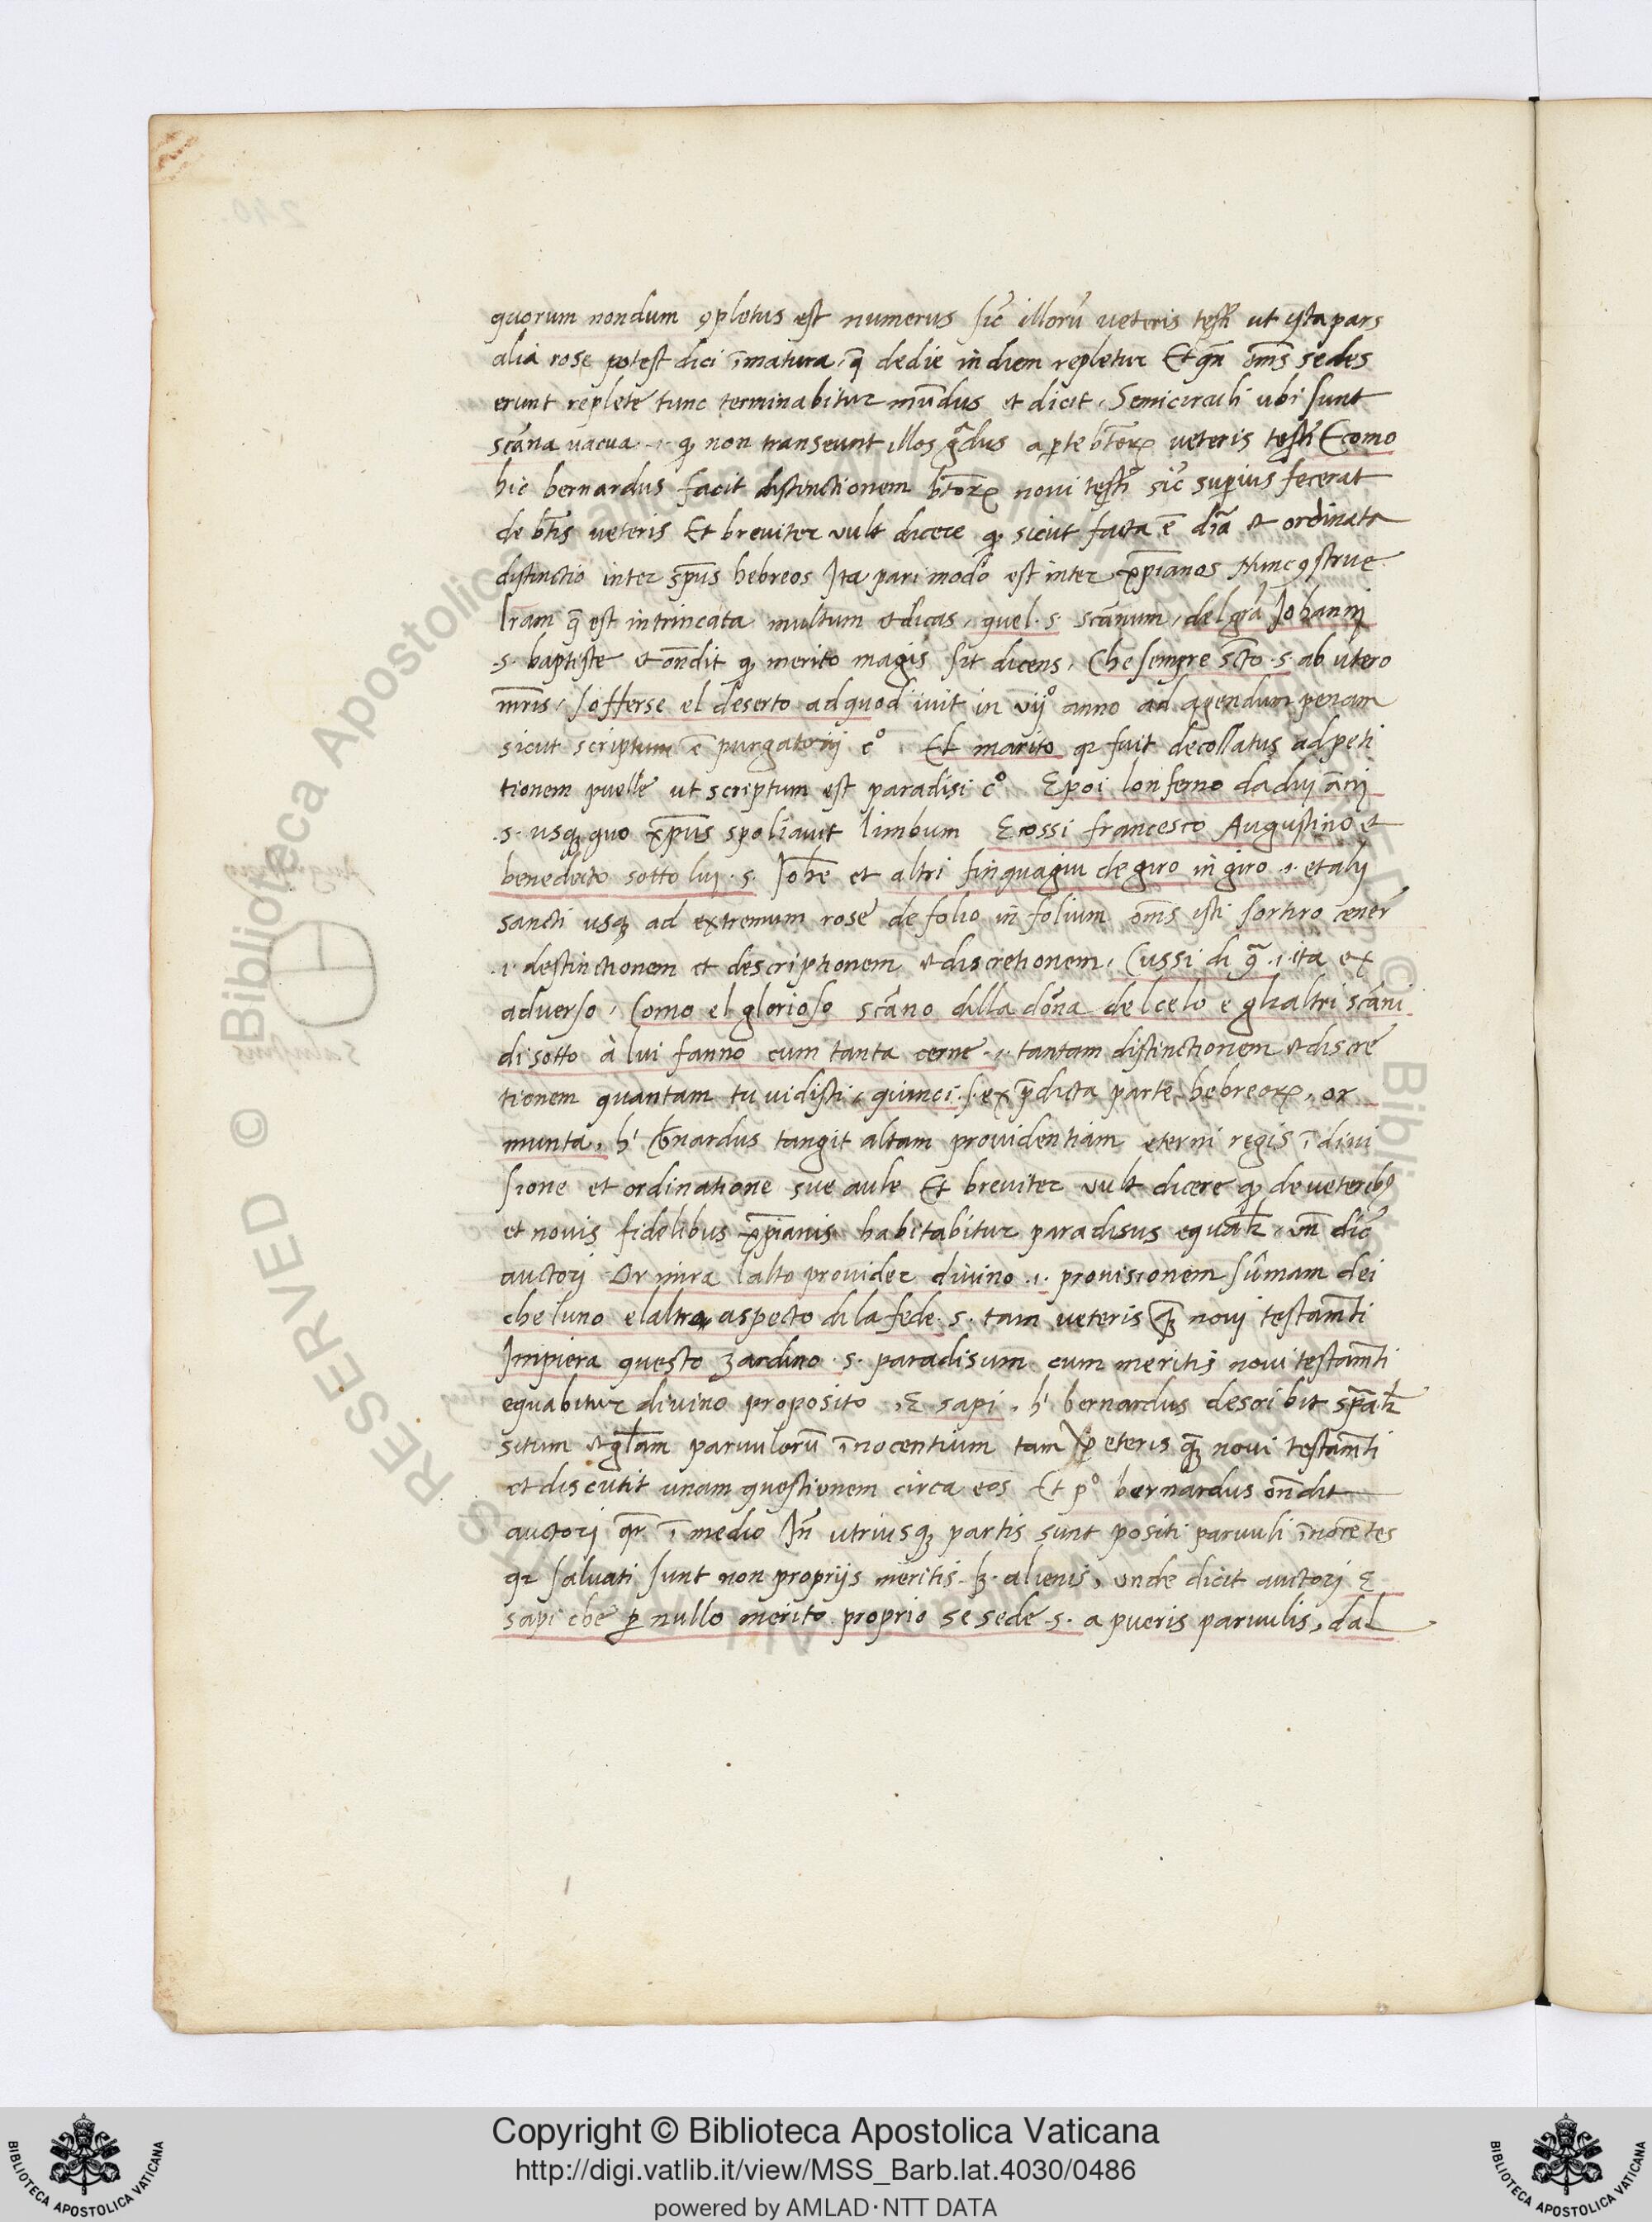 quorum nondum ꝯpletus est numerus sic̃ illorũ veteris testi̅ ut ista pars
alia rose potest dici i̅matura, q̅ de die in diem repletur Et qn̅ om̅s sedes
erunt replete tunc terminabitur mu̅dus et dicit, Semicirculi ubi sunt
sca̅na vacua .i. ꝙ non transeunt illos gͣdus a ꝑte bt̅oꝝ veteris testi̅ E como
hic bernardus facit distinctionem bt̅oꝝ novi testi̅ sic̃ superius fecerat
de bt̅is veteris Et breviter vult dicere ꝙ sicut facta e̅ dͥa et ordinata
distinctio inter sp̅us hebreos Ita pari modo est inter xp̅ianos Nunc ꝯstrue
lr̅am q̅ est intrincata multum et dicas, quel .s. sca̅num, del gra̅ Johanni
.s. baptiste et on̅dit ꝙ merito magis sit dicens, Che sempre sc̅to .s. ab utero
mr̅is, sofferse el deserto ad quod ivit in vijº anno ad agendum penam
sicut scriptum e̅ purgatorij cº. Et marito qꝛ fuit decollatus ad peti
tionem puelle ut scriptum est paradisi cº Epoi lonferno da dvj a̅nj
.s. usqꝫ quo xp̅us spoliavit limbum Ecossi francesco Augustino et
benedicto sotto luj .s. Johe̅ et altri fin quagiu de giro in giro .i. et alij
sancti usqꝫ ad extremum rose de folio in folium om̅s isti sortiro cener
.i. destinctionem et descriptionem et discretionem, Cussi di q̅ .i. ita ex
adverso, Como el glorioso sca̅no dilla do̅na del celo e gli altri sca̅ni
di sotto à lui fanno cum tanta cerne .i. tantam distinctionem et discre
tionem quantam tu vidisti, quinci .s. ex p̅dicta parte hebreoꝝ, or
munta, hͥ b̅nardus tangit altam providentiam eterni regis i̅ divi
sione et ordinatione sue aule Et breviter vult dicere ꝙ de veteribꝯ
et novis fidelibus xp̅ianis habitabitur paradisus equalr̅, vn̅ dic̃
auctorj Or mira lalto provider divino .i. provisionem su̅mam dei
che luno elaltro aspecto di la fede .s. tam veteris qꝫ̅ novj testam̅ti
Impiera questo zardino .s. paradisum cum meritis novi testam̅ti
equabitur divino proposito, E sapi, hͥ bernardus describit sp̅alr̅
situm et gl̅am parvulorũ i̅nocentium tam veteris qꝫ̅ novi testam̅ti
et discutit unam questionem circa eos Et pº bernardus on̅dit
auctorj qr̅ i̅ medio In̅ utriusqꝫ partis sunt positi parvuli i̅noce̅tes
qꝛ salvati sunt non proprijs meritis sꝫ alienis, unde dicit auctorj E
sapi che ꝑ nullo merito proprio se sede .s. a pueris parvulis, dal
Copyright © Biblioteca Apostolica Vaticana
http://digi.vatlib.it/view/MSS_Barb.lat.4030/0486
powered by AMLAD·NTT DATA
BIBLIOTECA APOSTOLICA VATICANA
BIBLIOTECA APOSTOLICA VATICANA